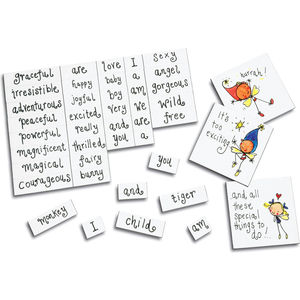 graceful
irresistible
adventurous
peaceful
powerful
magnificent
magical
courageous
are
happy
joyful
excited
really
thrilled
fairy
bunny
love
baby
boy
very
and
you
I
a
am
we
are
a
sexy
angel
gorgeous
wild
free
hurrah!
It's
too
exciting
and all
these
special
things to
do!...
you
and
tiger
monkey
I
child
am